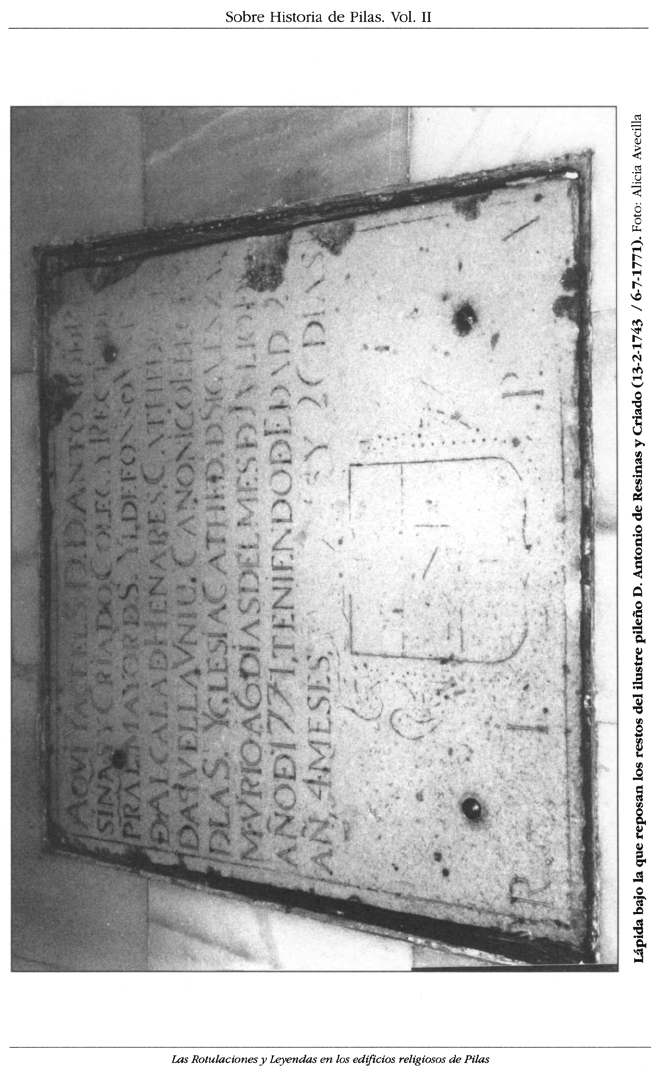 Sobre Historia de Pilas. Vol. II
AQVI YASE EL S. D. D ANTO
SINAS Y CRIADO COLEG. Y REC
PRAL. MAYOR D S. YLDEFONSO
D ALCALA D HENARES. CATHED
DA QVELLA VNIU. CANONICO LEC
D LA S. YGLESIA CATHED. D
MVRIO A 6 DIAS DEL MES D JVLIO D
AÑO D 1771, TENIENDO DE EDAD 2
AÑ, 4 MESES, Y 20 DIAS
R. I. P.
Lápida bajo la que reposan los restos del ilustre pileño D. Antonio de Resinas y Criado (13-2-1743 / 6-7-1771). Foto: Alicia Avecilla
Las Rotulaciones y Leyendas en los edificios religiosos de Pilas